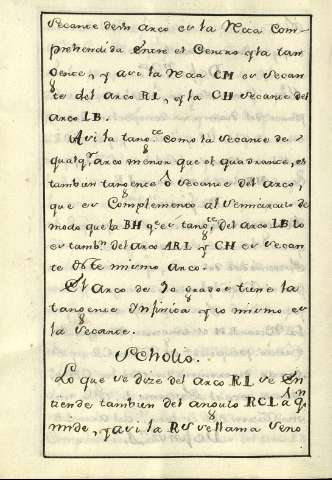 Secante de un arco es la Recta Com-
prehendida Entre el Centro y la tan
gente, y assi la Recta CM es Secan
te del arco RL, y la CH Secante del
arco LB.
Assi la tang.te como la Secante de
qualq.r arco menor que el quadrante, es
tambien tangente ô Secante del Arco,
que es Complemento al Semicirculo de
modo que la BH q.e es tang.te del arco LB lo
es tambn. del Arco ARL y CH es Secan
te deste mismo arco.
El Arco de 90 grados tiene la
tangente Infinita y lo mismo es
la Secante.
Scholio.
Lo que se dize del arco RL se En
tiende tambien del angulo RCL â qn
mide, y assi la RS se llama Seno